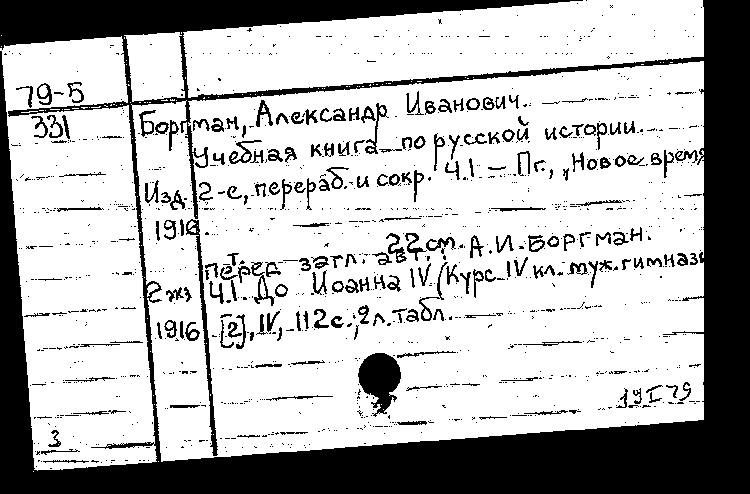 79-5
331
Боргман, Александр Иванович.
Учебная книга по русской истории.
Изд. 2-е, перераб. и сокр. Ч.1 – Пг., „Новое время
1916.
22 см.
Т.
Перед загл. авт.: А.И. Боргман.
2 экз Ч.1. До Иоанна IV (Курс IV кл. муж. гимнази
1916 [2], IV, 112 с.; 2 л. табл.
19 I 79
3